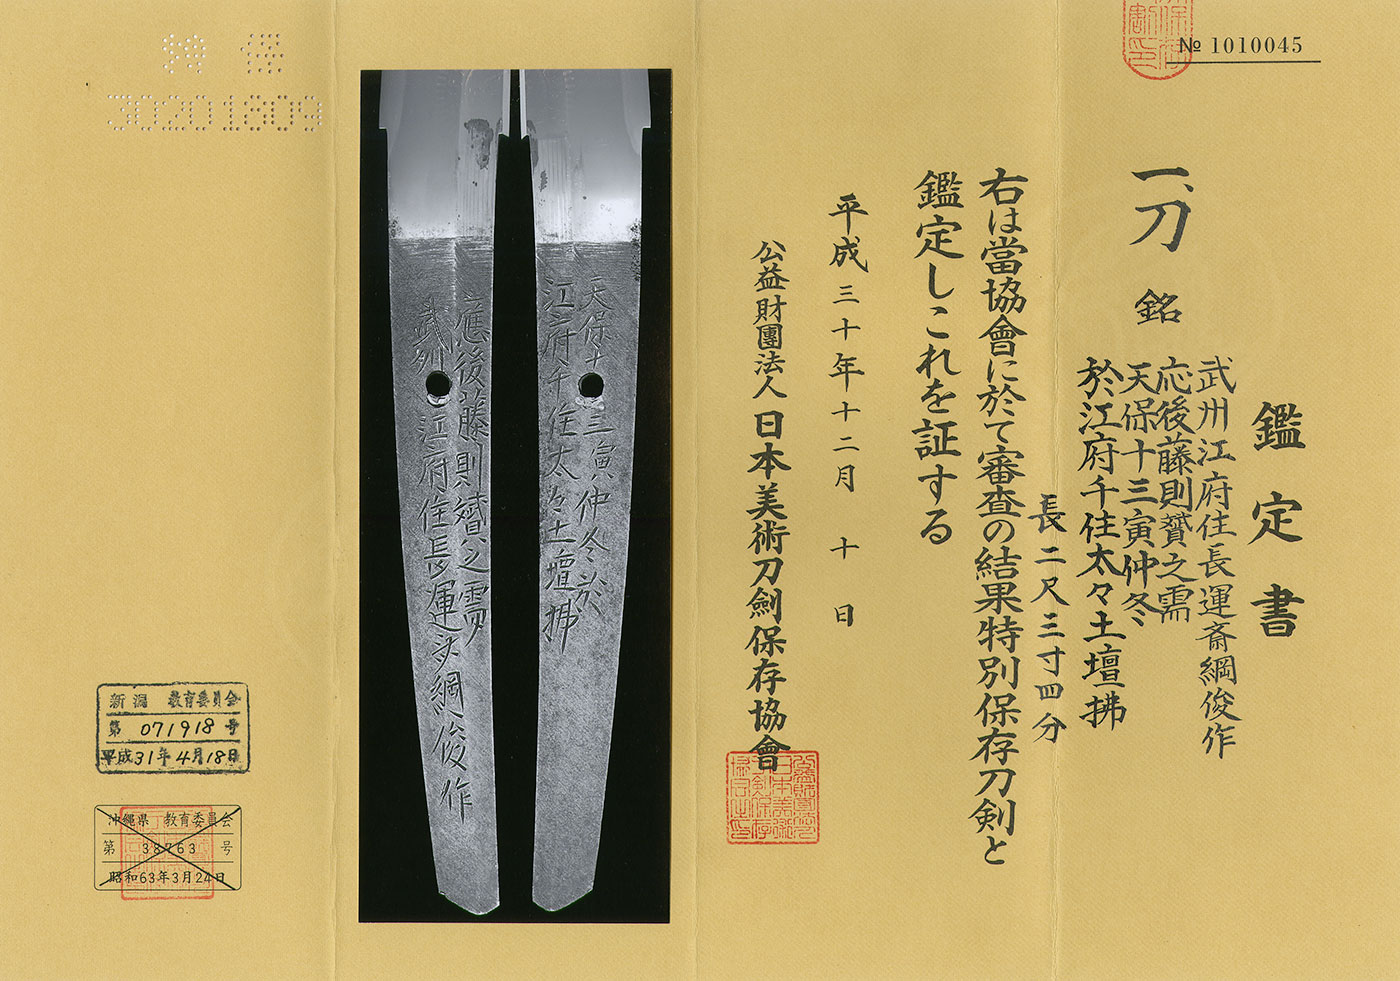 № 1010045
鑑定書
一、刀 銘
武州江府住長運斎綱俊作
応後藤則贇之需
天保十三寅仲冬
於江府千住太々土壇拂
長二尺三寸四分
右は當協會に於て審査の結果特別保存刀剣と
鑑定しこれを証する
平成三十年十二月十日
公益財團法人日本美術刀劍保存協會
天保十三寅仲冬於
江府千住太々土壇拂
應後藤則贇之需
武州江府住長運斎綱俊作
30201809
新潟 教育委員会
第 071918 号
平成31年4月18日
沖縄県 教育委員会
第 38763 号
昭和63年3月24日